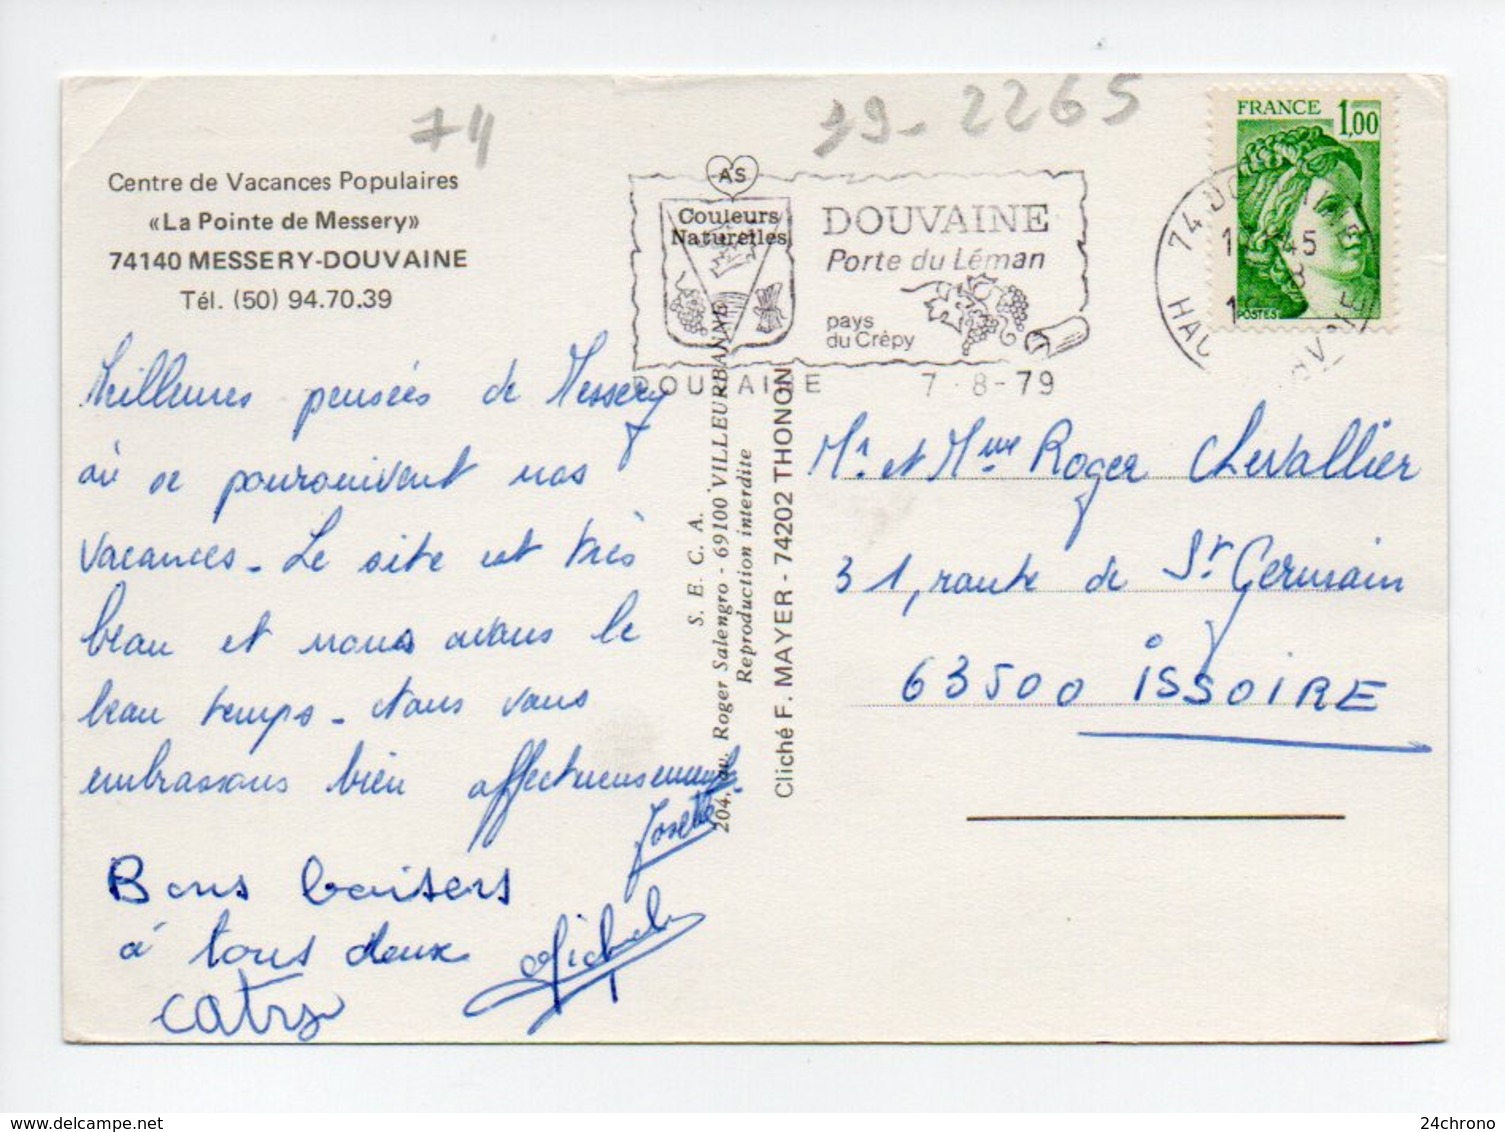 74
19-2265
Centre de Vacances Populaires
«La Pointe de Messery»
74140 MESSERY-DOUVAINE
Tél. (50) 94.70.39
Meilleures pensées de Messery
où se poursuivent nos
vacances - Le site est très
beau et nous avons le
beau temps - Nous vous
embrassons bien affectueusement
Josette
Bons baisers
à tous deux
Michel
catry
AS
Couleurs
Naturelles
DOUVAINE
Porte du Léman
pays
du Crépy
DOUVAINE 7-8-79
FRANCE 1,00
POSTES
S. E. C. A.
204, av. Roger Salengro - 69100 VILLEURBANNE
Reproduction interdite
Cliché F. MAYER - 74202 THONON
Mr et Mme Roger Chevallier
31, route de St Germain
63500 ISSOIRE
delcampe.net
24chrono